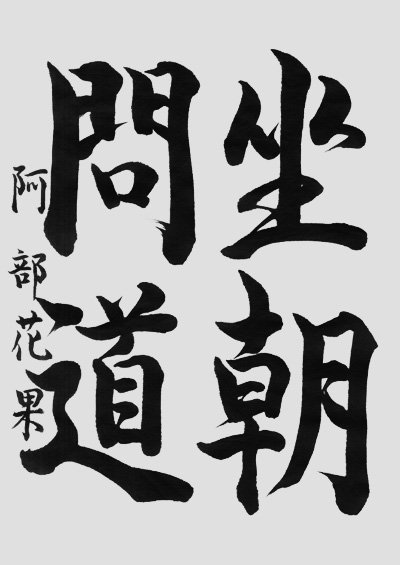 坐朝
問道
阿部花果